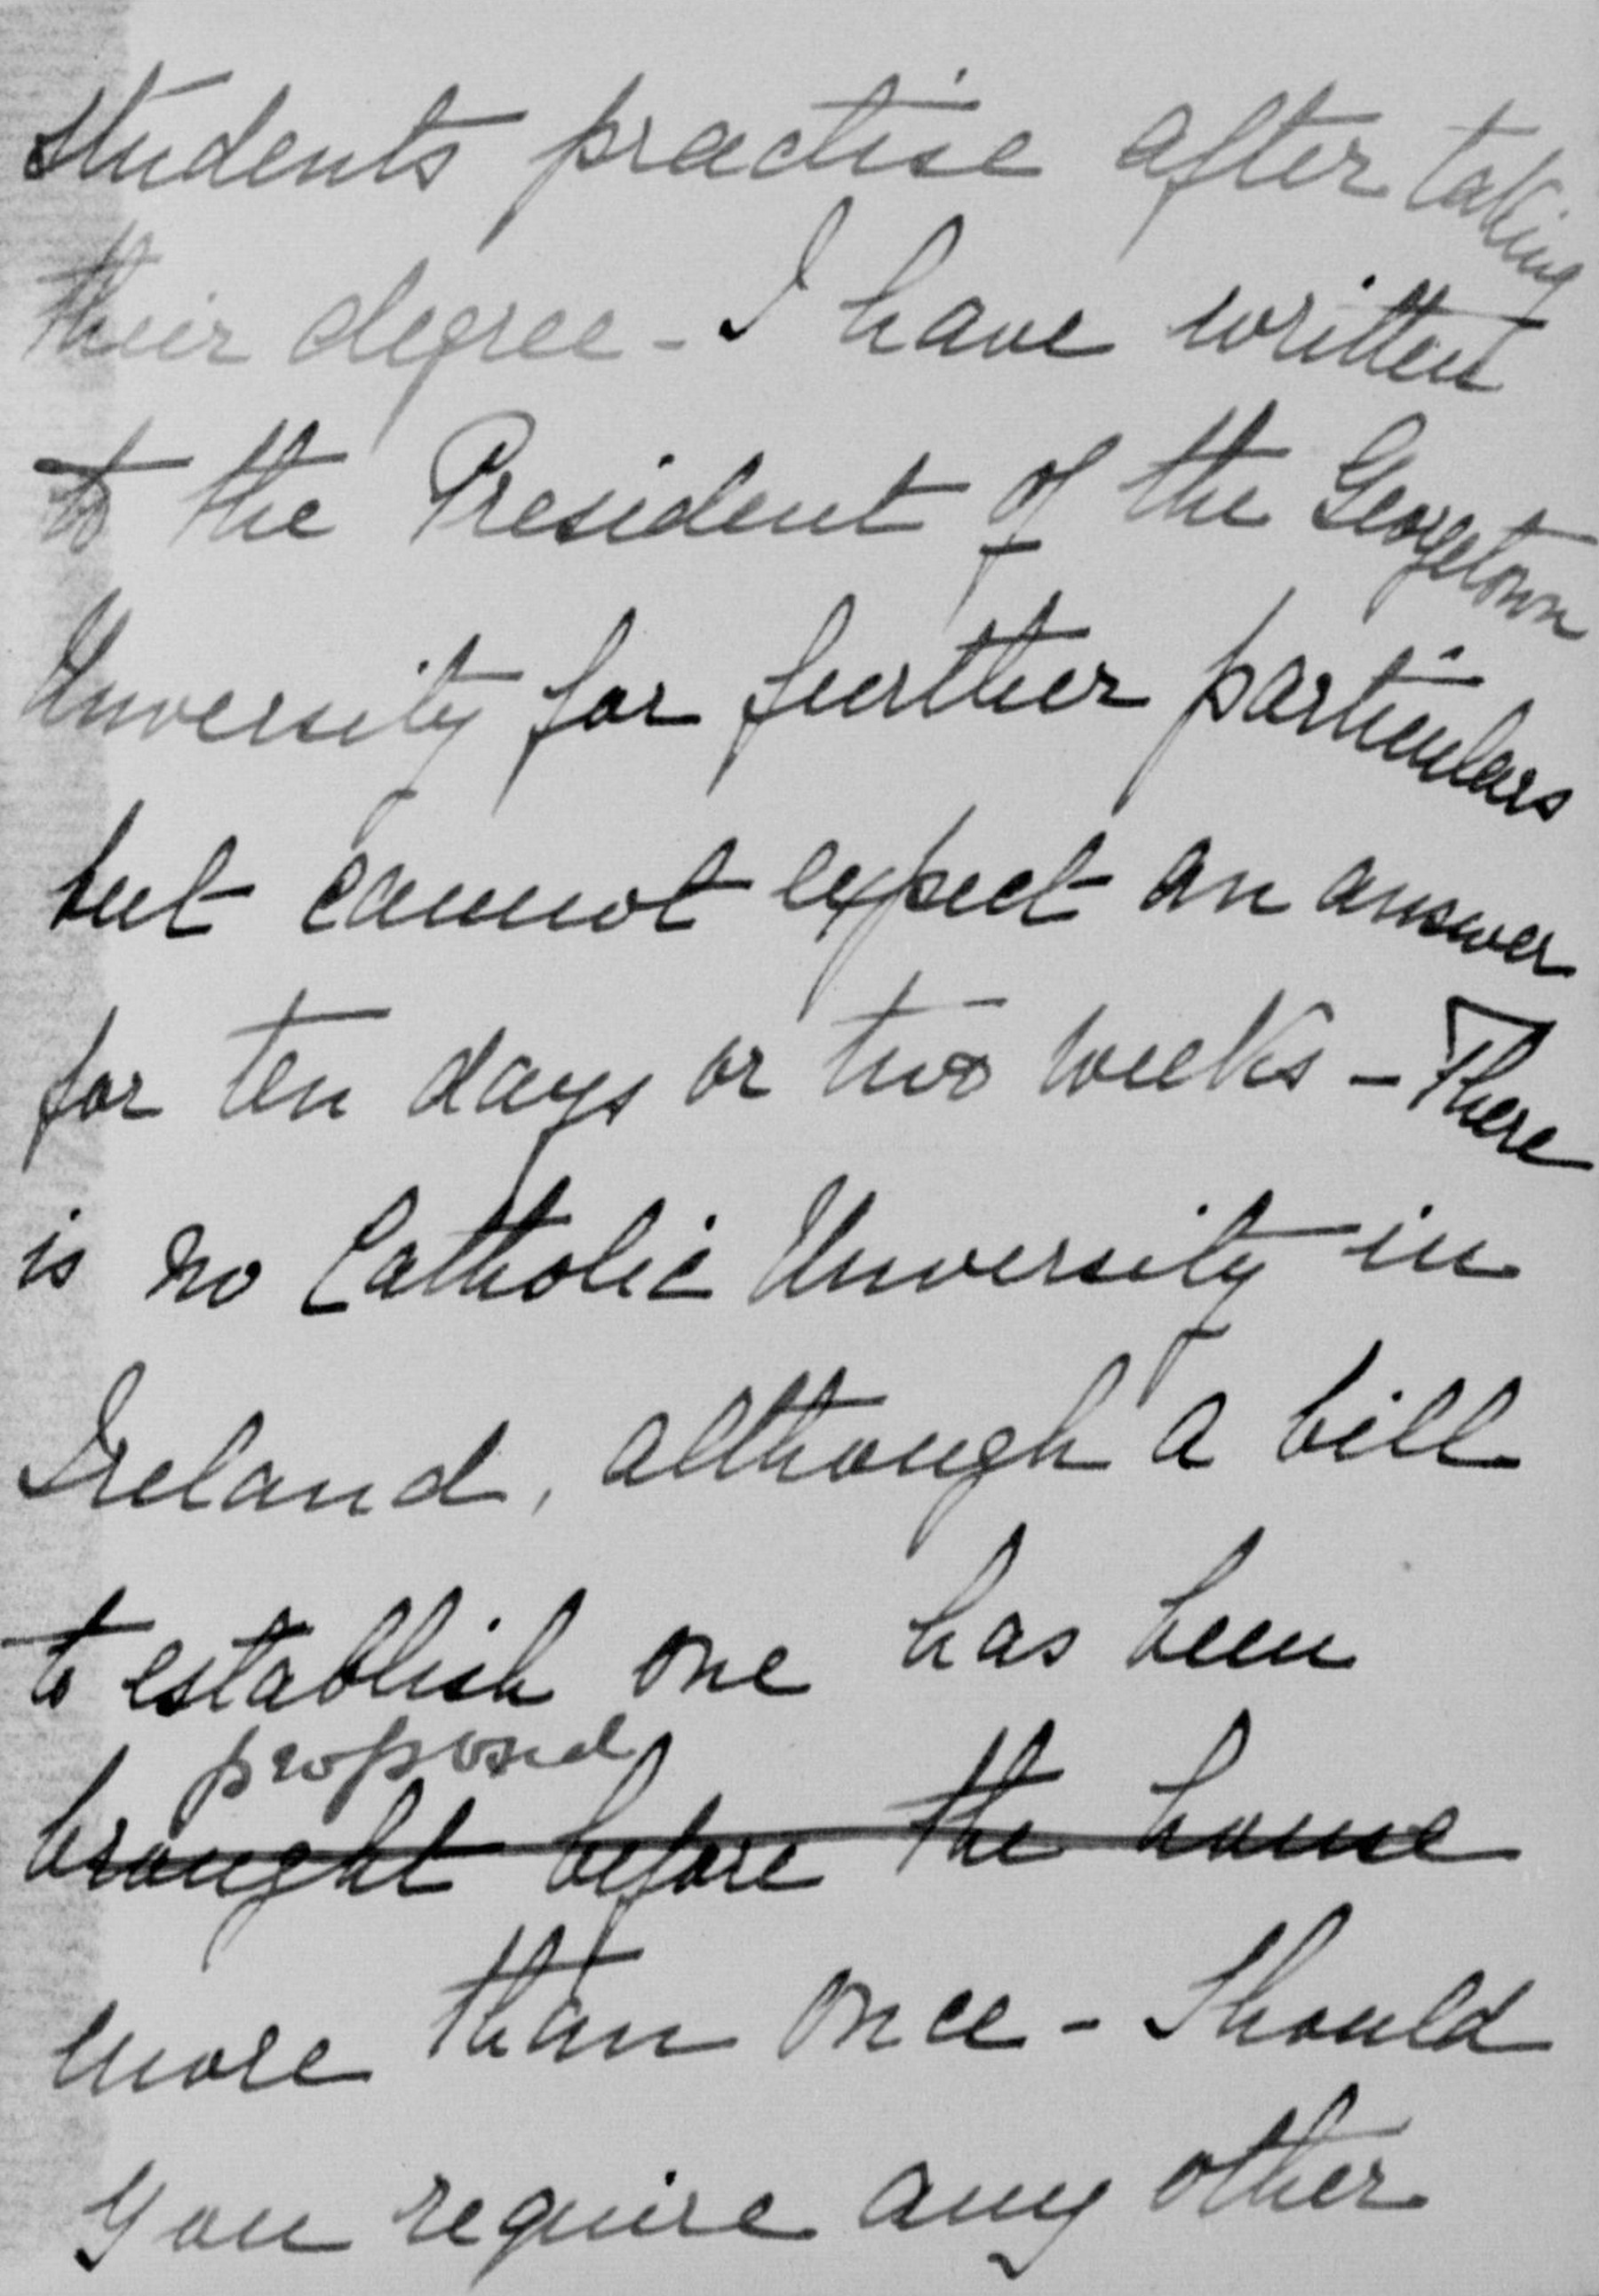 students practise after taking
their degree - I have written
to the President of the Georgetown
University for further particulars
but cannot expect an answer
for ten days or two weeks - There
is no Catholic University in
Ireland, although a bill
to establish one has been
proposed
brought before the house
more than once - Should
you require any other